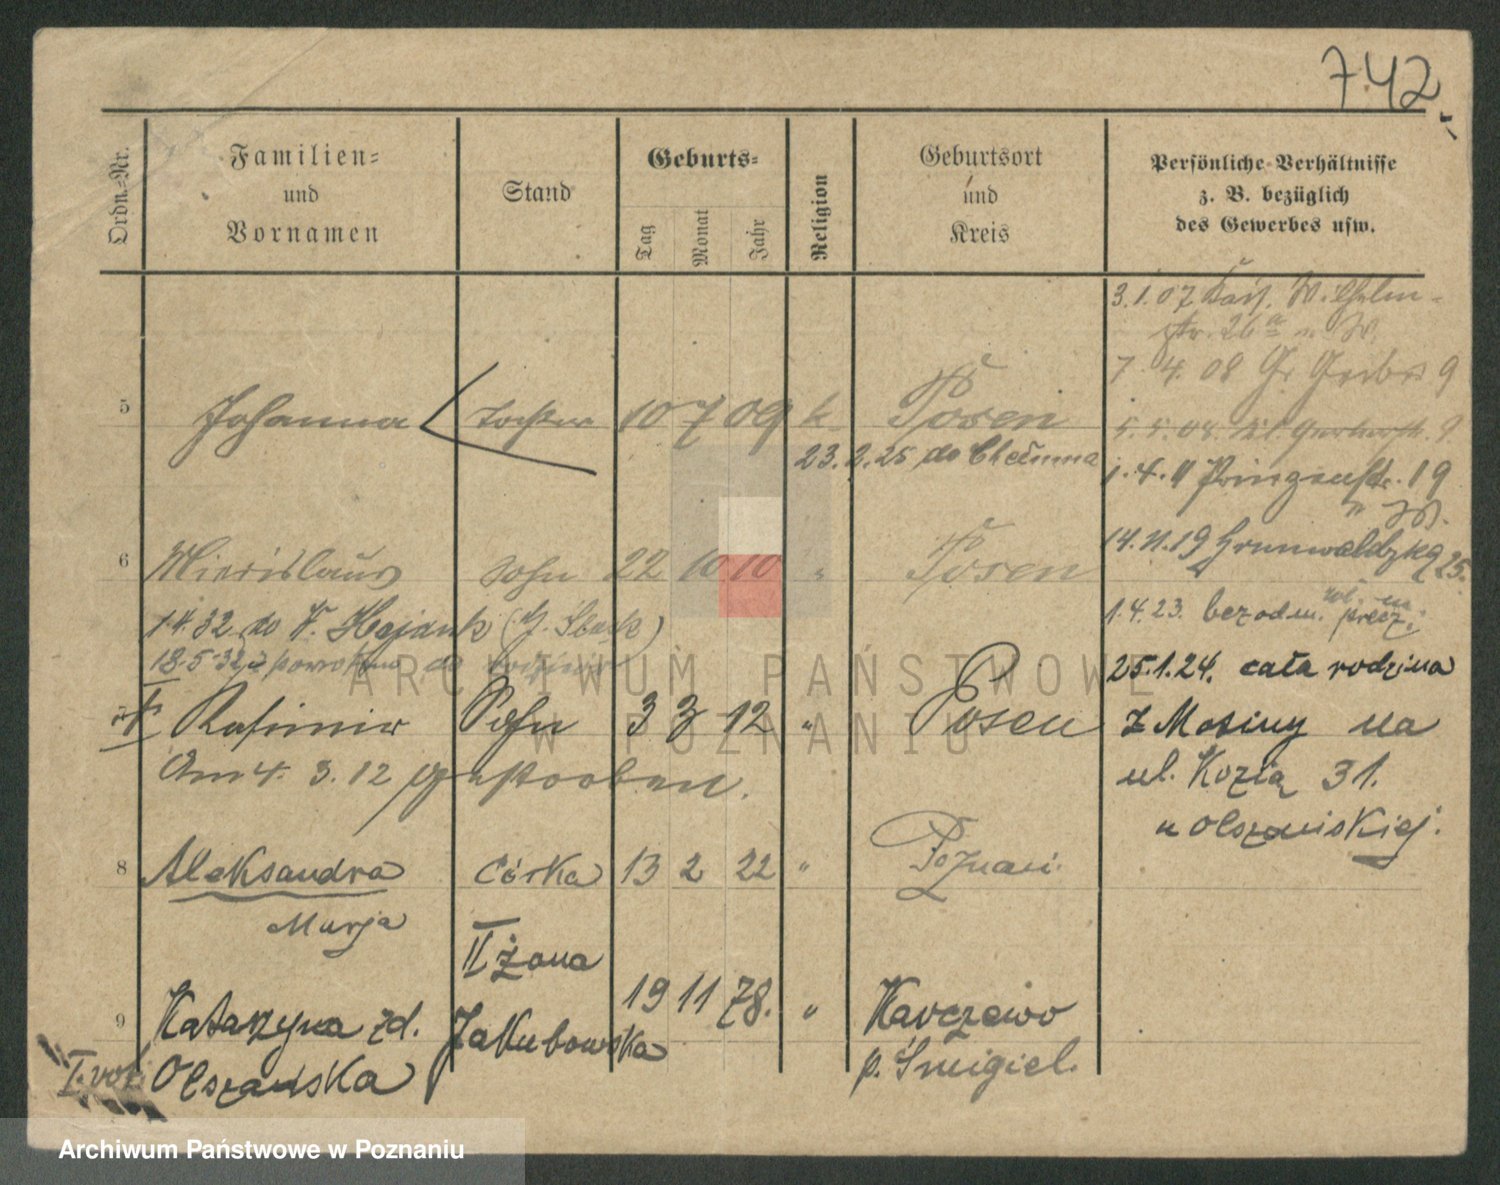 742
Ordn.-Nr.
Familien-
und
Vornamen
Stand
Geburts-
Tag
Monat
Jahr
Religion
Geburtsort
und
Kreis
Persönliche Verhältnisse
z. B. bezüglich
des Gewerbes usw.
3.1.07 Kais. Wilhelm-
str. 26a n. W.
7. 4. 08 Gr. 9
5 Johanna Tochter 10 7 09 k Posen
23.2.25 do Chełmna
9
1.4.11 Prinzenstr. 19
n W.
6 Miecislaus Sohn 22 10 10 " Posen
14.11.19 Grunwaldzka 25.
1.4.32 do
18.5.32 z powrotem do
1.4.23. bez odm.
25.1.24. cała rodzina
z Mosiny na
ul. Kozią 31.
u Olszańskiej.
† Kasimir Sohn 3 3 12 " Posen
Am 4. 3. 12 gestorben.
8 Aleksandra córka 13 2 22 " Poznań
Marja
II żona
9 Katarzyna zd. Jakubowska 19 11 78. " Karczewo
I. voto Olszańska
p. Śmigiel.
ARCHIWUM PAŃSTWOWE
W POZNANIU
Archiwum Państwowe w Poznaniu